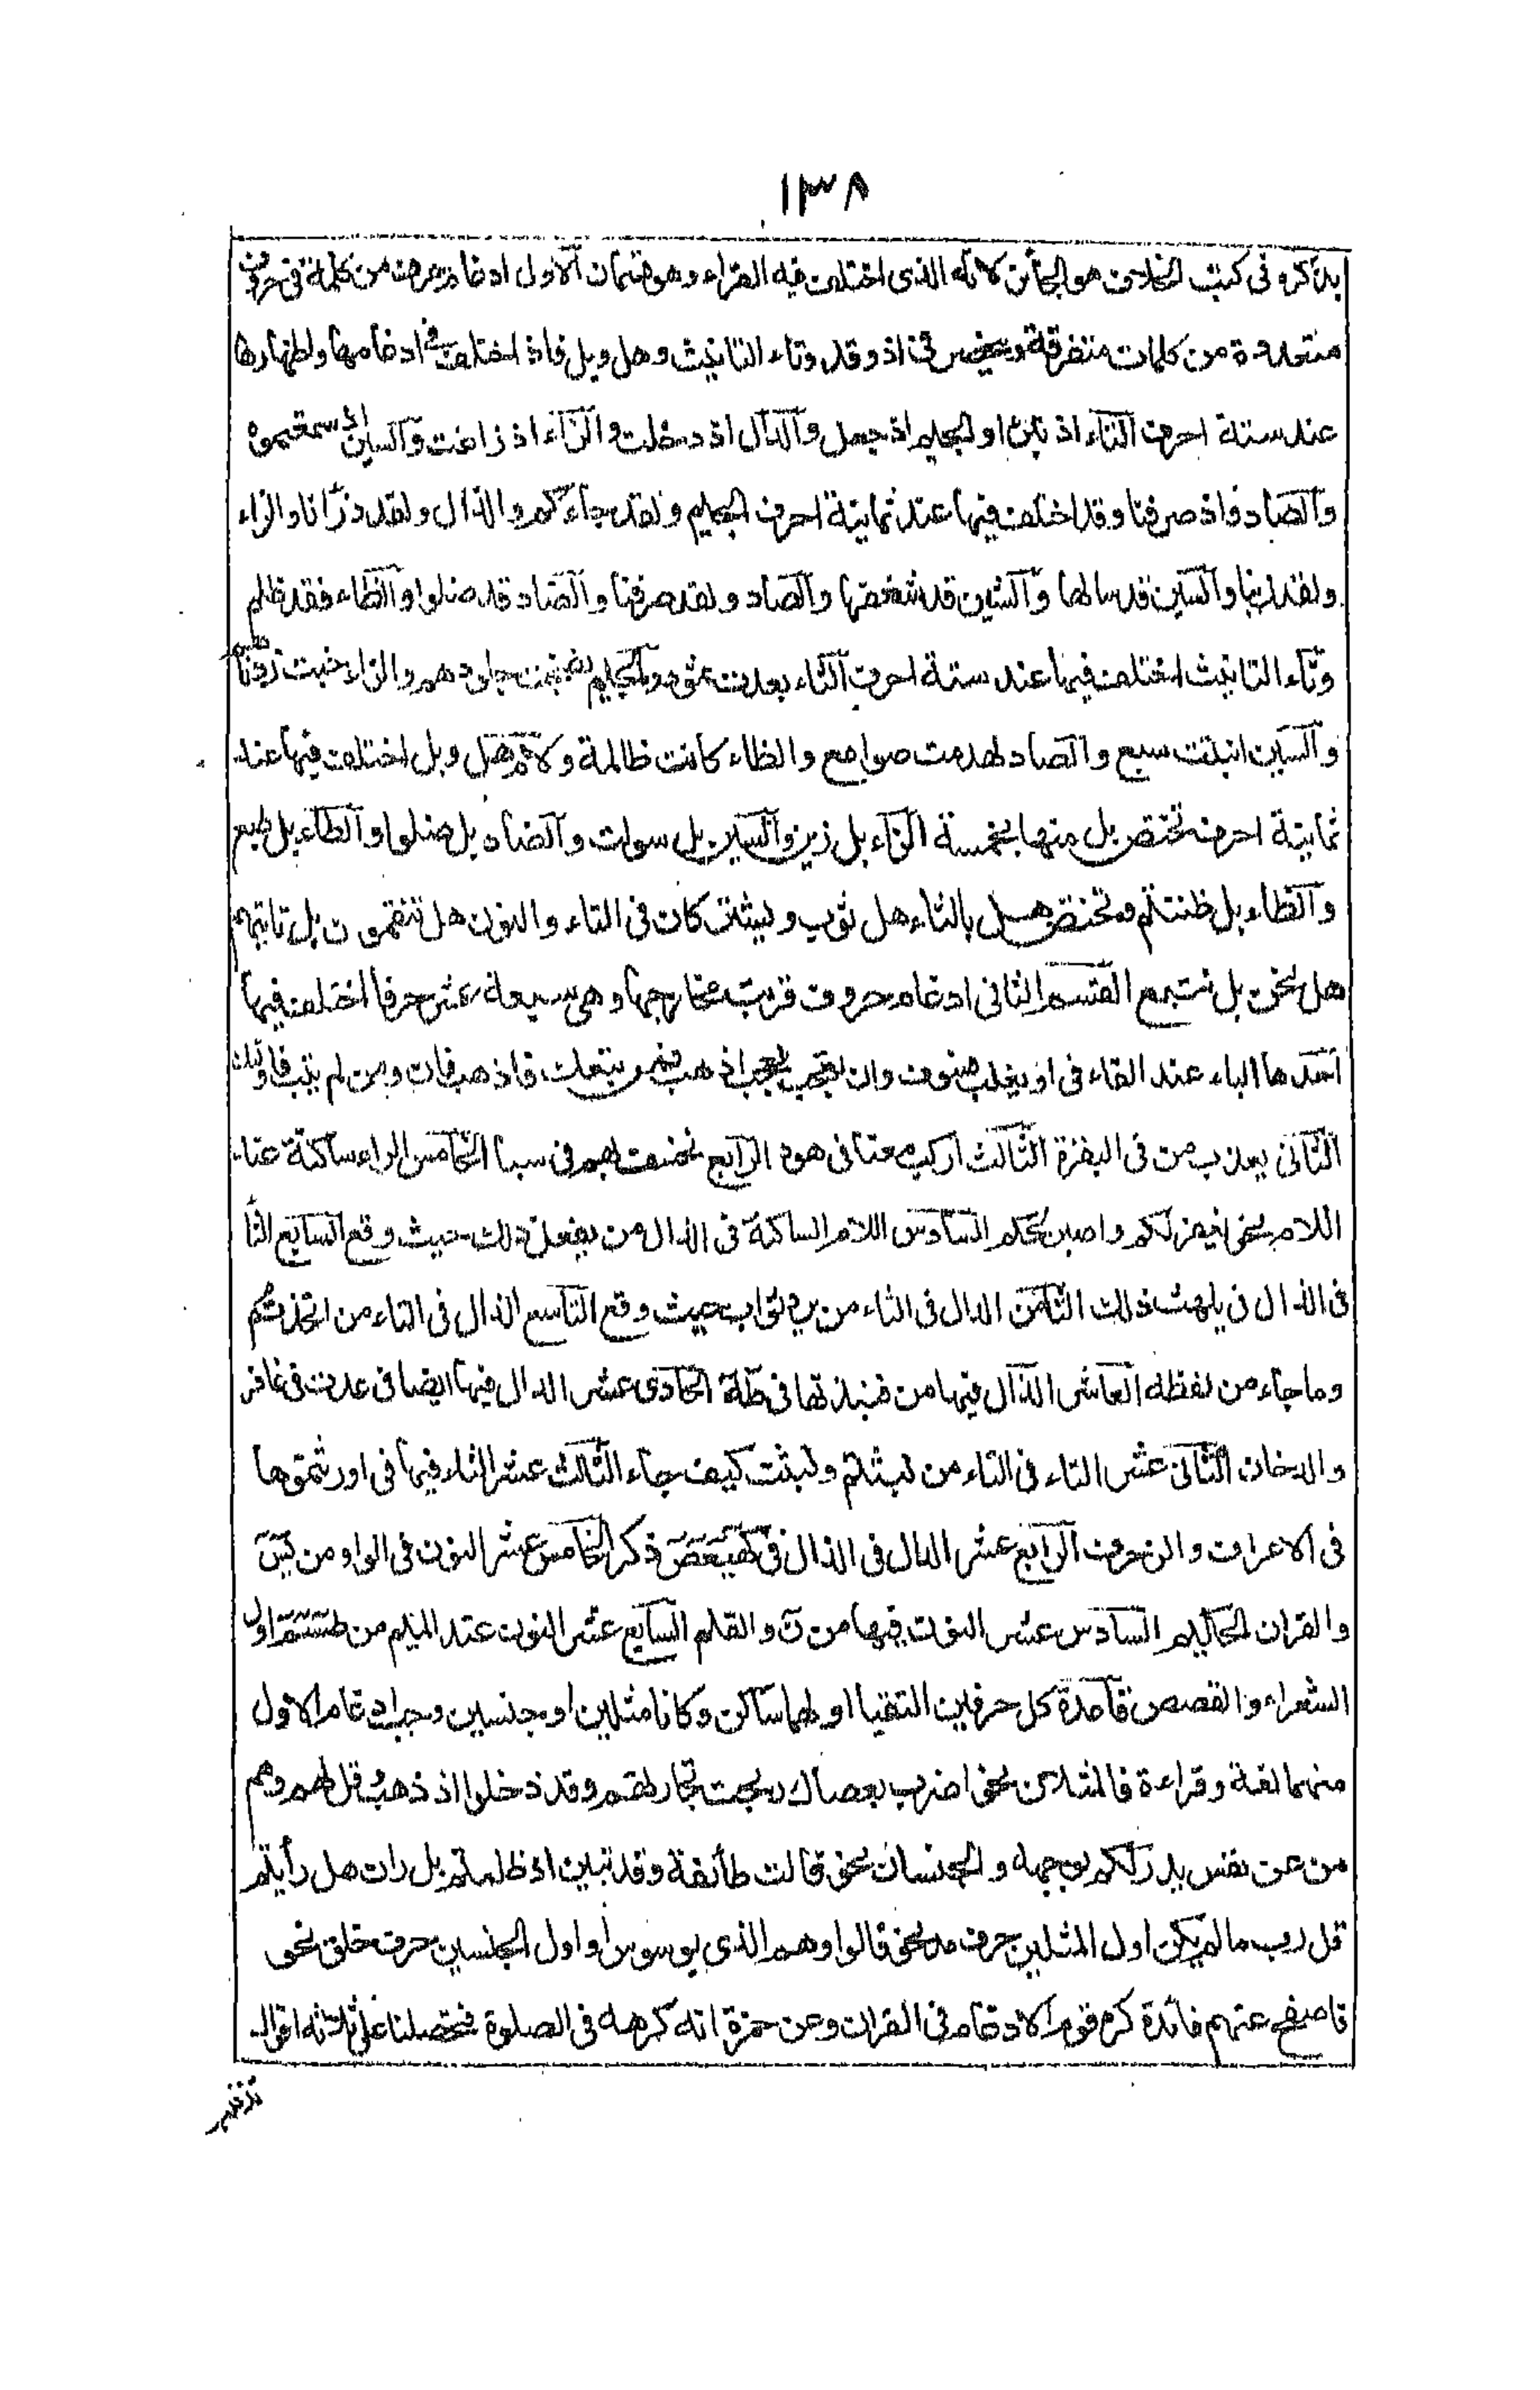 ١٣٨
يذكر فى كتب الخلاف هو الجائز لانه الذى اختلف فيه القراء وهو قسمان الاول ادغام حرف من كلمة فى حروف
متعددة من كلمات متفرقة وينحصر فى اذ وقد وتاء التانيث وهل وبل فاذ اختلف فى ادغامها واظهارها
عند ستة احرف التاء اذ تبرا والجيم اذ جعل والدال اذ دخلت والزاء اذ زاغت والسين اذ سمعتموه
والصاد واذ صرفنا وقد اختلف فيها عند ثمانية احرف الجيم ولقد جاءكم والذال ولقد ذرأنا والزاء
ولقد زينا والسين قد سالها والشين قد شغفها والصاد ولقد صرفنا والضاد قد ضلوا والظاء فقد ظلم
وتاء التانيث اختلف فيها عند ستة احرف الثاء بعدت ثمود والجيم نضجت جلودهم والزاء خبت زدناهم
والسين انبتت سبع والصاد لهدمت صوامع والظاء كانت ظالمة ولام هل وبل اختلف فيها عند
ثمانية احرف تختص بل منها بخمسة الزاء بل زين والسين بل سولت والضاد بل ضلوا والطاء بل طبع
والظاء بل ظننتم وتختص هل بالثاء هل ثوب ويشتركان فى التاء والنون هل تنقمون بل تاتيهم
هل نحن بل نتبع القسم الثانى ادغام حروف قربت مخارجها وهى سبعة عشر حرفا اختلف فيها
احدها الباء عند الفاء فى او يغلب فسوف وان تعجب فعجب اذهب فمن تبعك فاذهب فان ومن لم يتب فاولئك
الثانى يعذب من فى البقرة الثالث اركب معنا فى هود الرابع نخسف بهم فى سبا الخامس الراء ساكنة عند
اللام نحو يغفر لكم واصبر لحكم السادس اللام الساكنة فى الذال من يفعل ذلك حيث وقع السابع الثا
فى الذال فى يلهث ذلك الثامن الدال فى الثاء من يرد ثواب حيث وقع التاسع الذال فى التاء من اتخذتم
وما جاء من لفظه العاشر الذال فيها من فنبذتها فى طه الحادى عشر الذال فيها ايضا فى عذت فى غافر
والدخان الثانى عشر الثاء فى التاء من لبثتم ولبثت كيف جاء الثالث عشر الثاء فيها فى اورثتموها
فى الاعراف والزخرف الرابع عشر الدال فى الذال فى كهيعص ذكر الخامس عشر النون فى الواو من يس
والقران الحكيم السادس عشر النون فيها من ن والقلم السابع عشر النون عند الميم من طسم اول
الشعراء والقصص قاعدة كل حرفين التقيا اولهما ساكن وكانا مثلين او جنسين وجب ادغام الاول
منهما لغة وقراءة فالمثلان نحو اضرب بعصاك ربحت تجارتهم وقد دخلوا اذ ذهب وقل لهم وهم
من عن نفس يدرككم يوجهه والجنسان نحو قالت طائفة وقد تبين اذ ظلمتم بل ران هل رأيتم
قل رب ما لم يكن اول المثلين حرف مد نحو قالوا وهم الذى يوسوس او اول الجنسين حرف حلق نحو
فاصفح عنهم فائدة كره قوم الادغام فى القران وعن حمزة انه كرهه فى الصلوة فتحصلنا على ثلثة اقوال